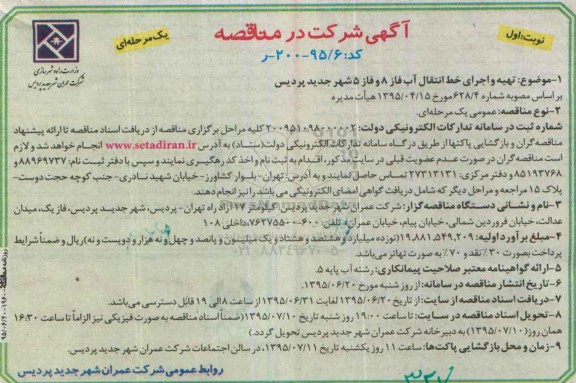 آگهی شرکت در مناقصه
نوبت: اول
یک مرحله‌ای
کد: ۹۵/۶-۲۰۰-ر
وزارت راه و شهرسازی
شرکت عمران شهر جدید پردیس
۱-موضوع: تهیه و اجرای خط انتقال آب فاز ۸ و فاز ۵ شهر جدید پردیس
بر اساس مصوبه شماره ۶۲۸/۴ مورخ ۱۳۹۵/۰۴/۱۵ هیأت مدیره
۲-نوع مناقصه: عمومی یک مرحله‌ای.
شماره ثبت در سامانه تدارکات الکترونیکی دولت: کلیه مراحل برگزاری مناقصه از دریافت اسناد مناقصه تا ارائه پیشنهاد
مناقصه گران و بازگشایی پاکتها از طریق درگاه سامانه تدارکات الکترونیکی دولت(ستاد) به آدرس www.setadiran.ir انجام خواهد شد و لازم
است مناقصه گران در صورت عدم عضویت قبلی در سایت مذکور، اقدام به ثبت نام و اخذ کد رهگیری نمایند و سپس با دفتر ثبت نام: ۸۸۹۶۹۷۳۷و
۸۵۱۹۳۷۶۸ و دفتر مرکزی: ۲۷۳۱۳۱۳۱ تماس حاصل نمایند و به آدرس: تهران- بلوار کشاورز- خیابان شهید نادری- جنب کوچه حجت دوست-
پلاک ۱۵ مراجعه و مراحل دیگر که شامل دریافت گواهی امضای الکترونیکی می‌باشد را نیز انجام دهند.
۳-نام و نشانی دستگاه مناقصه گزار: شرکت عمران شهر جدید پردیس- کیلومتر ۱۷ آزادراه تهران - پردیس، شهر جدید پردیس، فاز یک، میدان
عدالت، خیابان فروردین شمالی، خیابان پیام، خیابان عمران، تلفن: ۶۰۰-۷۶۲۷۵۵۰۰ داخلی ۱۰۸
۴-مبلغ برآورد اولیه: ۱۹,۸۸۱,۵۴۹,۲۰۹(نوزده میلیارد و هشتصد و هشتاد و یک میلیون و پانصد و چهل و نه هزار و دویست و نه) ریال و ضمناً شرایط
پرداخت بصورت ۳۰٪ نقد و ۷۰٪ به صورت تهاتر می‌باشد.
۵-ارائه گواهینامه معتبر صلاحیت پیمانکاری: رشته آب پایه ۵.
۶-تاریخ انتشار مناقصه در سامانه: از روز مورخ ۱۳۹۵/۰۶/۲۰.
۷-دریافت اسناد مناقصه از سایت: از تاریخ ۱۳۹۵/۰۶/۲۰ لغایت ۱۳۹۵/۰۶/۳۱ از ساعت ۸ الی ۱۹ قابل دسترسی می‌باشد.
۸-تحویل اسناد مناقصه در سایت: تا ساعت ۱۹:۰۰ روز شنبه تاریخ ۱۳۹۵/۰۷/۱۰(ضمناً اسناد مناقصه به صورت فیزیکی نیز الزاماً تا ساعت ۱۶:۳۰
همان روز(۱۳۹۵/۰۷/۱۰) به دبیرخانه شرکت عمران شهر جدید پردیس تحویل گردد.)
۹-زمان و محل بازگشایی پاکت‌ها: ساعت ۱۱ روز یکشنبه تاریخ ۱۳۹۵/۰۷/۱۱، در سالن اجتماعات شرکت عمران شهر جدید پردیس.
روابط عمومی شرکت عمران شهر جدید پردیس